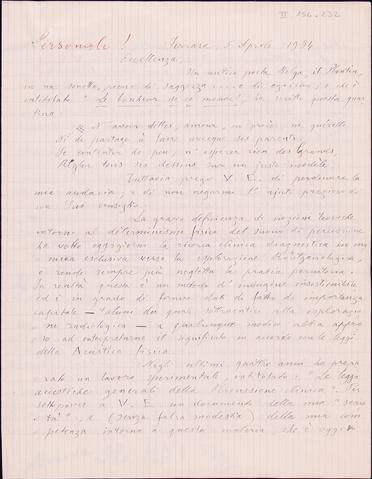 II 156.232
Personale! Ferrara, 5 Aprile 1934
Eccellenza,
Un antico poeta Belga, il Plantin,
in un sonetto, pieno di saggezza .... e di egoismo, e che è
intitolato "Le bonheur de ce monde", ha scritto questa quar
tina
N'avoir dettes, amour, ni procès, ni querelle
Ni de partage à faire avecque ses parents,
Se contenter de peu, n'espérer rien des Grands,
Régler tous ses desseins sur un juste modèle.
Tuttavia prego V. E. di perdonare la
mia audacia, e di non negarmi l'aiuto prezioso di
un Suo consiglio.
La grave deficienza di nozioni teoriche
intorno al determinismo fisico del suono di percussione
ha volto oggigiorno la ricerca clinica diagnostica in mo
do esclusiva verso la esplorazione Röntgenologica,
e rende sempre più negletta la pratica percussoria.
In realtà questa è un metodo d'indagine insostituibile
ed è in grado di fornire dati di fatto di importanza
capitale — alcuni dei quali sottraentisi alla esplorazio
ne radiologica — a qualunque medico abbia appre
so ad interpretarne il significato in accordo con le leggi
della Acustica fisica.
Negli ultimi quattro anni ho prepa
rato un lavoro sperimentale, intitolato: "Le leggi
acustiche generali della Percussione clinica". Per
sottoporre a V. E. un documento della mia "serie
tà", e (senza falsa modestia) della mia com
petenza intorno a questa materia, che è oggi